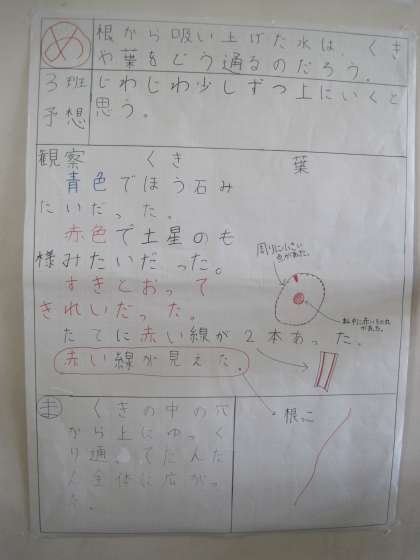 め
根から吸い上げた水は、くき
や葉をどう通るのだろう。
3班
予想
じわじわ少しずつ上にいくと
思う。
観察 くき 葉
青色でほう石み
たいだった。
赤色で土星のも
様みたいだった。
すきとおって
きれいだった。
たてに赤い線が2本あった。
赤い線が見えた。
周りに小さい
があった。
があった。
根っこ
ま
くきの中の穴
から上にゆっく
り通ってだんだ
ん全体に広がっ
た。